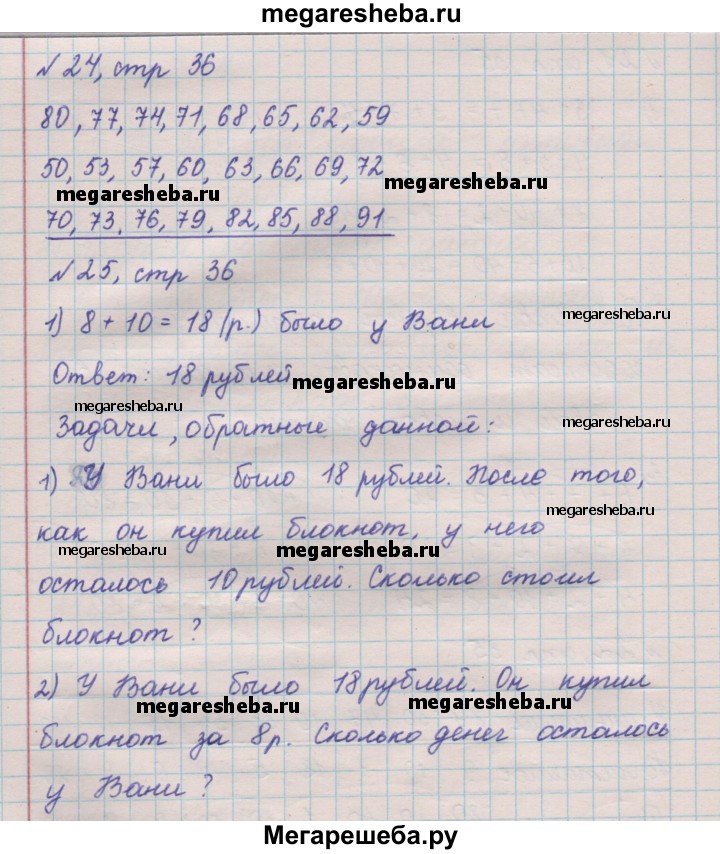 megaresheba.ru
№ 24, стр 36
80, 77, 74, 71, 68, 65, 62, 59
50, 53, 57, 60, 63, 66, 69, 72
megaresheba.ru
megaresheba.ru
70, 73, 76, 79, 82, 85, 88, 91
№ 25, стр 36
megaresheba.ru
1) 8 + 10 = 18 (р.) было у Вани
Ответ: 18 рублей
megaresheba.ru
megaresheba.ru
megaresheba.ru
Задачи, обратные данной:
1) У Вани было 18 рублей. После того,
megaresheba.ru
как он купил блокнот, у него
megaresheba.ru
megaresheba.ru
осталось 10 рублей. Сколько стоил
блокнот?
2) У Вани было 18 рублей. Он купил
megaresheba.ru
megaresheba.ru
блокнот за 8 р. Сколько денег осталось
у Вани?
Мегарешеба.ру